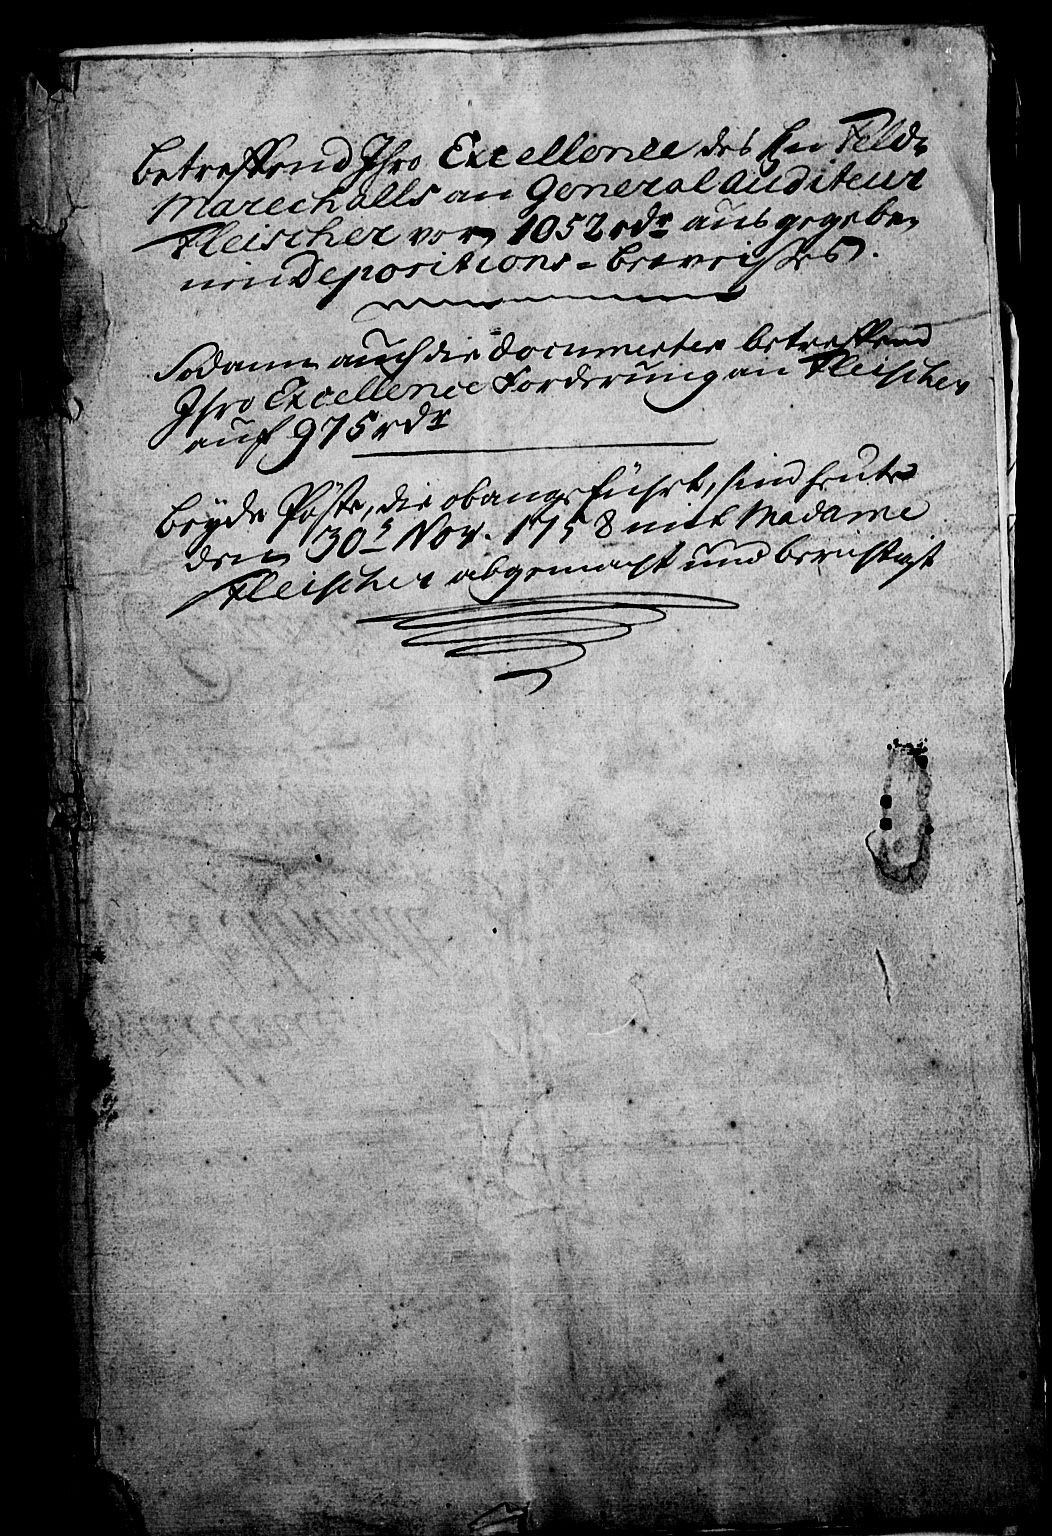 Betreffend Ihro Excellence des Hn Feld-
Marechalls an General Auditeur
Fleischer von 1052 rdr ausgegebe-
nen Depositions-Beweisses.
Sodann auch die Documenten betreffend
Ihro Excellence Forderung an Fleischer
auf 975 rdr
Beyde Pöste, die obangeführt, sind heute
den 30t Nov. 1758 mit Madame
Fleischer abgemacht und berichtigt